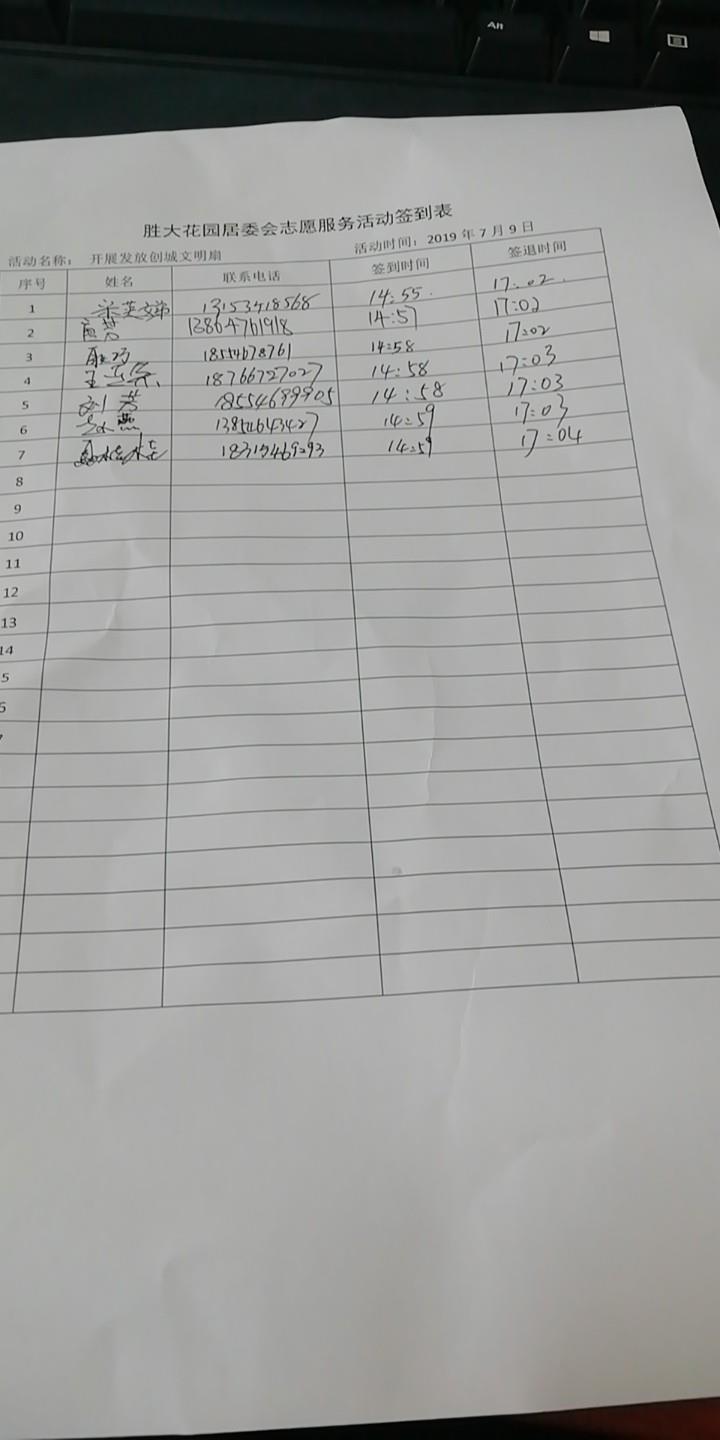 Alt
胜大花园居委会志愿服务活动签到表
活动名称： 开展发放创城文明扇 活动时间：2019 年 7 月 9 日
序号 姓名 联系电话 签到时间 签退时间
1 13153418568 14:55 17:02
2 13864761918 14:57 17:02
3 18554678761 14:58 17:02
4 18766727027 14:58 17:03
5 刘芳 18554699905 14:58 17:03
6 13854643427 14:59 17:03
7 14:59 17:04
8
9
10
11
12
13
14
5